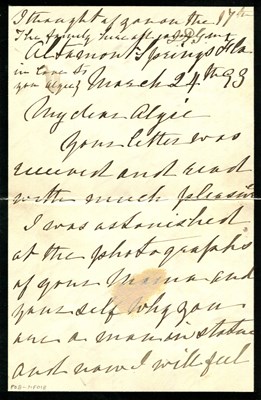 I thought of you on the 17th
The family here all join
in love to
you Algie
Altamont Springs Fla
March 24th 93
My dear Algie
Your letter was
received and read
with much pleasure
I was astonished
at the photographs
of your Mama and
your self Why you
are a man in statue
and now I will feel